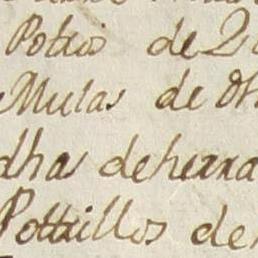 Potro de 2
Mulas de
dhas deherra
Pottrillos de